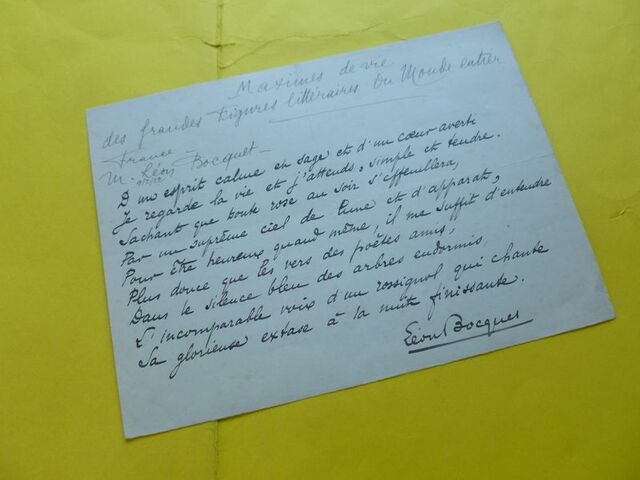 Maximes de vie
des grandes figures littéraires du Monde entier
France
M. Léon Bocquet
D'un esprit calme en sage et d'un cœur averti
Je regarde la vie et j'attends, simple et tendre.
Sachant que toute rose au soir s'effeuillera,
Par un suprême ciel de lune et d'apparat,
Pour être heureux quand même, il me suffit d'entendre
Plus douce que les vers des poètes amis,
Dans le silence bleu des arbres endormis,
L'incomparable voix d'un rossignol qui chante
Sa glorieuse extase à la nuit finissante.
Léon Bocquet